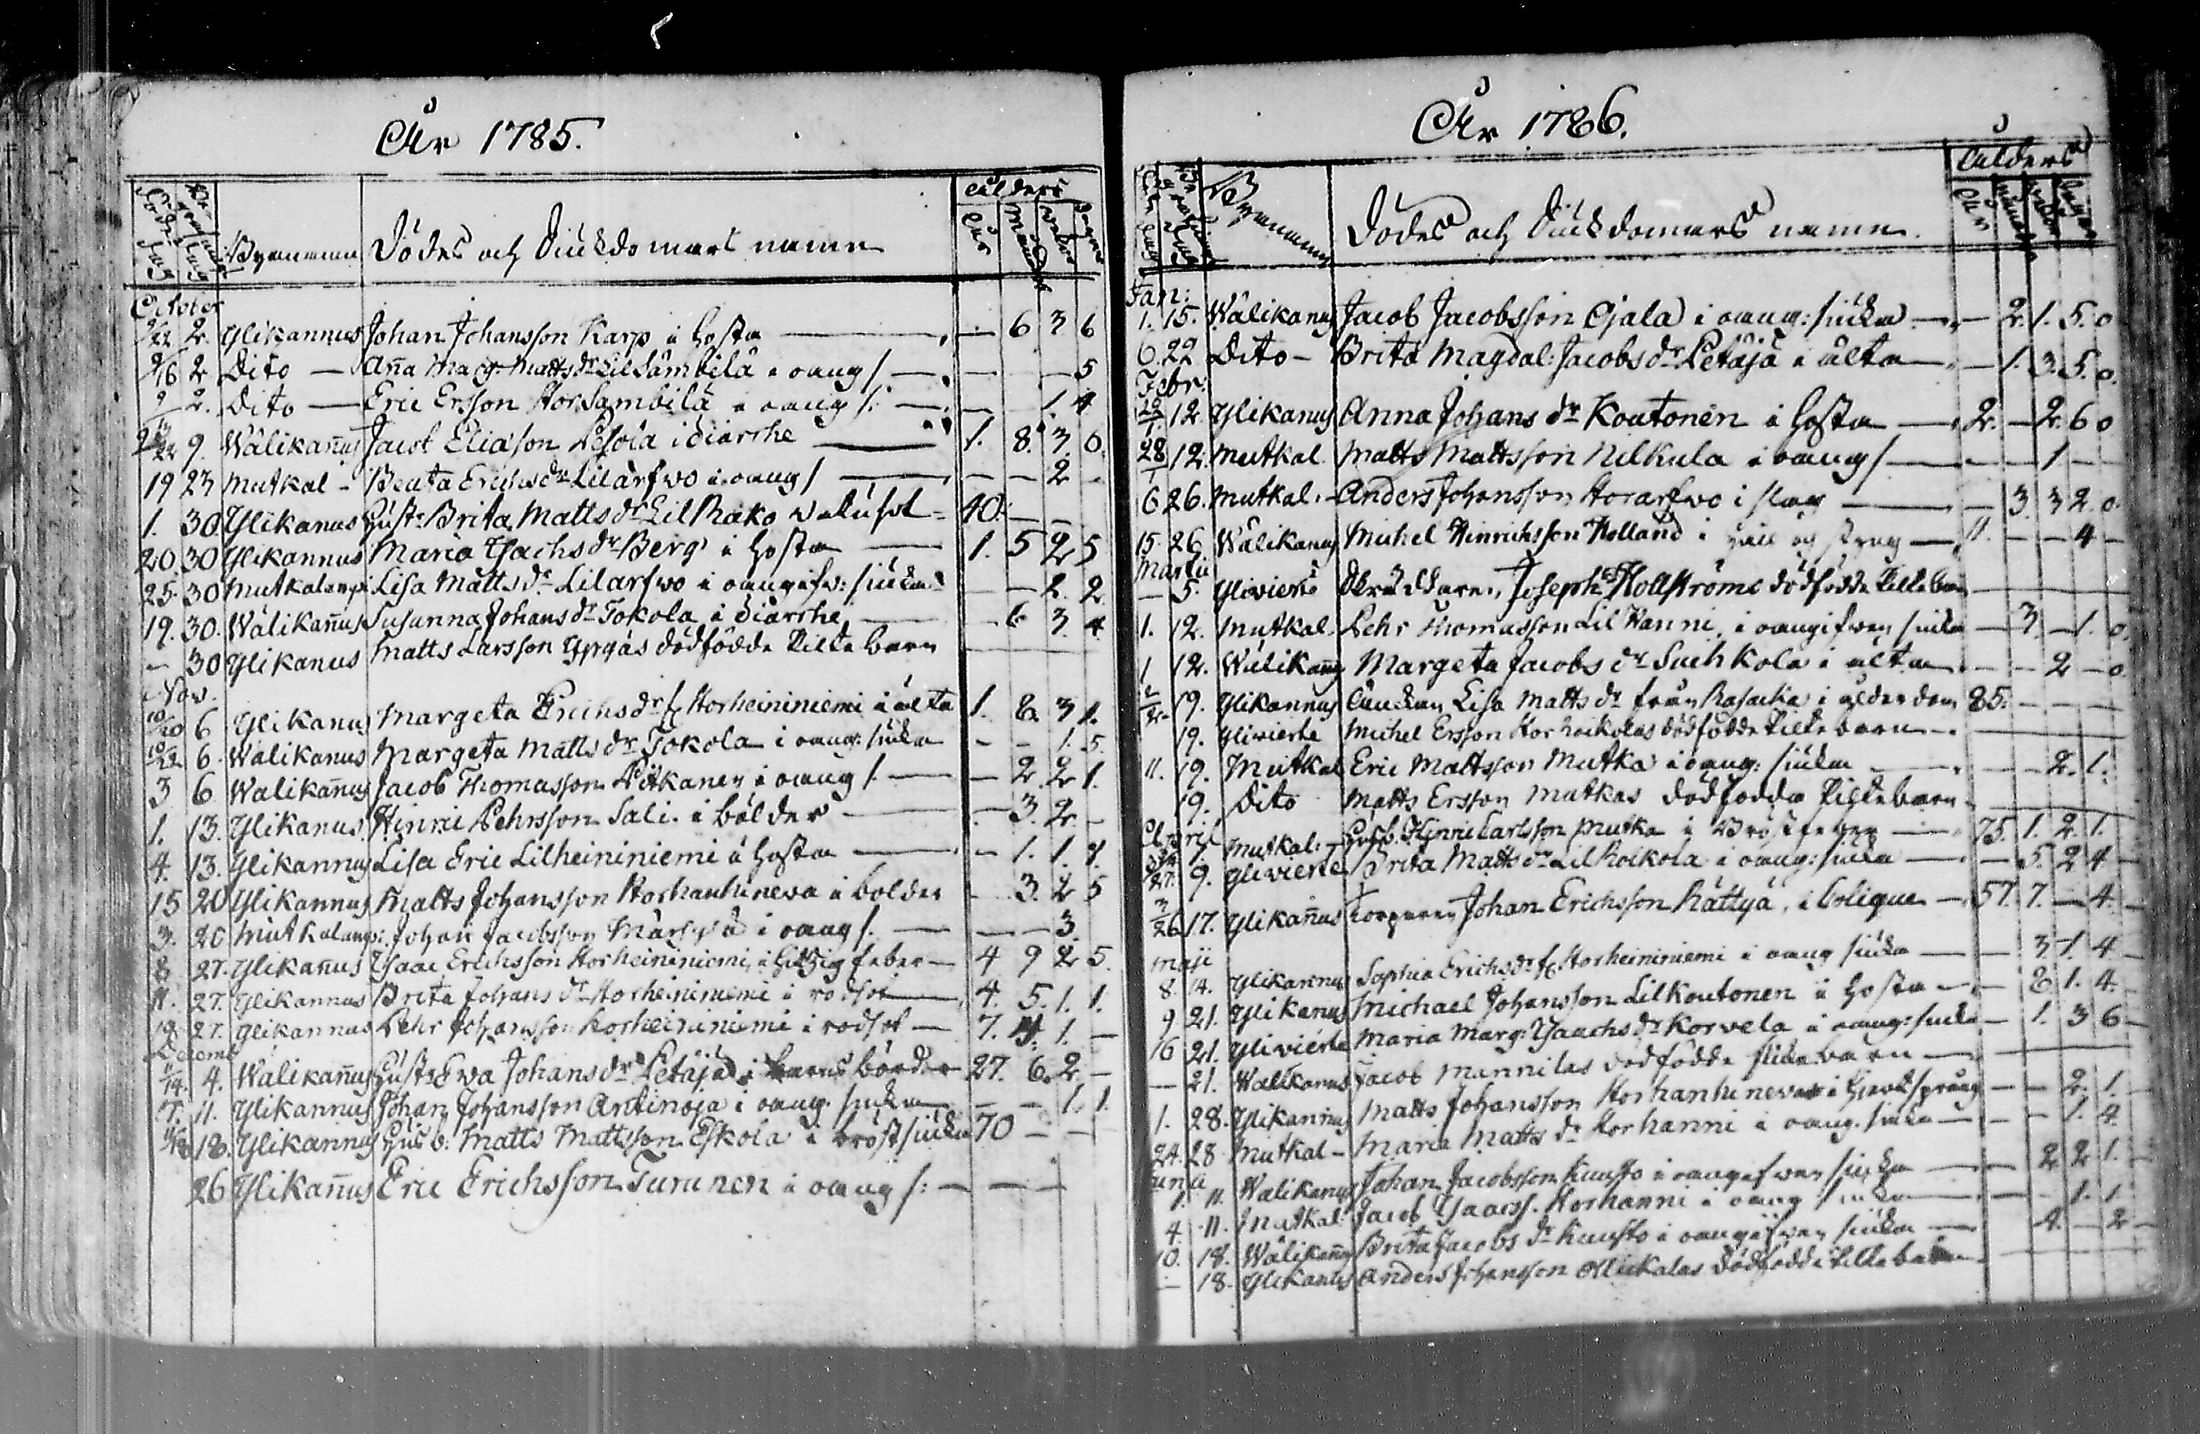 År 1785.
Döde dag Begrafnings dag Bynamn Dödes och Siukdomars namn Ålders År Månad Wekor Dagar
October
9/22 2. Ylikannus Johan Johansson Karp i hosta — 6 3 6
9/16 2 Dito — Anna Marg. Matts dr LilSämbilä i oang s — — — 5
9/ 2. Dito — Eric Ersson StorSambilä i oang s. — — 1. 4
9. Wälikanus Jacob Eliasson Pesola i diarrhe — 1. 8. 3. 0
19 23 Mutkal - Beata Erichs dr Lilarfwo i oang s — — 2 -
1. 30 Ylikanus Hustr. Brita Matts dr LilRäko watusot 40. — —
20 30 Ylikannus Maria Isachs dr Berg i hosta — 1. 5 2 5
25. 30 Mutkalamp: Lisa Matts dr Lilarfwo i oangifw: siuka — — 2. 2
19. 30. Wälikanus Susanna Johans dr Tokola i diarrhe — 6 3. 4
— 30 Ylikanus Matts Larsson Yppäs dödfödde Pilte barn
Nov.
10/20 6 Ylikanus Margeta Erichs dr Storheininiemi i älta 1. 8. 3 1.
10/22 6. Walikanus Margeta Matts dr Tokola i oang: siuka - - 1. 5.
3 6 Walikanus Jacob Thomasson Pitkanen i oang s. — 2. 2 1.
1. 13. Ylikanus Hinric Pehrsson Sali i bölder — 3. 2. -
4. 13. Ylikannus Lisa Eric Lilheininiemi i hosta — 1. 1. 1.
15 20 Ylikannus Matts Johansson Storhanhineva i bolder - 3. 2 5
3. 20 Mutkalamp: Johan Jacobsson Märsylä i oang s. — — 3
8 27. Ylikanus Isaac Erichsson Storheininiemi i hitzig feber — 4 9 2 5.
11. 27. Ylikannus Brita Johans dr Storheininiemi i rodsot — 4. 5. 1. 1.
19 27. Ylikannus Pehr Johansson Storheininiemi i rodsot — 7. 1. —
Decemb
11/14. 4. Wälikanus Hustr Ewa Johans dr Petäjä i barns börder 27. 6. 2. -
7. 11. Ylikannus Johan Johansson Antinoja i oang. siuka — — 1. 1.
18. Ylikannus Husb: Matts Mattsson Eskola i bröstsiuka 70 - -
26 Ylikanus Eric Erichsson Turunen i oang s: — — —
År 1786.
Bynamn Dödes och Siukdomars namn. Ålders År
Jan:
1. 15. Wälikanus Jacob Jacobsson Ojala i oang: siuka — 2. 1. 5. 0
6. 22 Dito - Brita Magdal: Jacobs dr Petäjä i älta — 1. 3. 5. 0.
Febr:
12. Ylikanus Anna Johans dr Koutonen i hosta — 2. — 2. 6 0
28/1 12. Mutkal. Matts Mattsson Nilkula i oang s — — 1 —
6 26. Mutkal. - Anders Johansson Storarfwo i slag — 3 3 2. 0.
15. 26. Wälikanus Michel Hinrichsson Holland i håll og styng — 11. — — 4 —
Martii
— 5. Yliviesk Skräddaren Joseph Hollströms dödfödde Pilte barn
1. 12. Mutkal. Pehr Thomasson LilHanni i oangifwen siuka — 3 — 1. 0.
1 12. Wälikanus Margeta Jacobs dr Suchkola i älta — — 2 — 0
19. Ylikannus Änckan Lisa Matts dr från Rasacka i ålderdom 85. — — —
19. Ylivieska Michel Ersson Storkoikolas dödfödde Pilte barn —
11. 19. Mutkal Eric Mattsson Mutka i oang: siuka — — 2. 1.
19. Dito Matts Ersson Mutkas dödfödde Piltebarn
April
Mutkal: - Husb. Hinric Carlsson Mutka i Bröstfeber — 75. 1. 2. 1.
27. 9. Ylivieska Brita Matts dr LilKoikola i oang: siuka — 5. 2 4
3/26 17. Ylikanus Johan Erichsson Rättyä, i Colique — 57. 7. — 4.
Maji
8. 14. Ylikannus Sophia Erichs dr Storheininiemi i oang siuka — 3 1. 4 —
9 21. Ylikanus Michael Johansson Lilkoutonen i hosta — 2 1. 4.
16 21. Ylivieska Maria Marg: Isaachs dr Korvela i oang: siuka — 1. 3 6 —
— 21. Walikanus Jacob Mannilas dödfödde flicke barn —
1. 28. Ylikannus Matts Johansson Storhanhineva i hierts språng — — 2. 1.
24. 28 Mutkal - Maria Matts dr Storhanni i oang. siuka — — 1. 4.
Junii
1. 11. Walikanus Johan Jacobsson Kuusto i oangifwen siuka — 2 2 1.
4. 11. Mutkal Jacob Isaacss. Storhanni i oang siuka — — 1. 1.
10. 18. Wälikanus Brita Jacobs dr Kuusto i oangifwen siuka — 4. — 2 —
— 18. Ylikanus Anders Johansson Ollikalas dödfödde Pilte barn